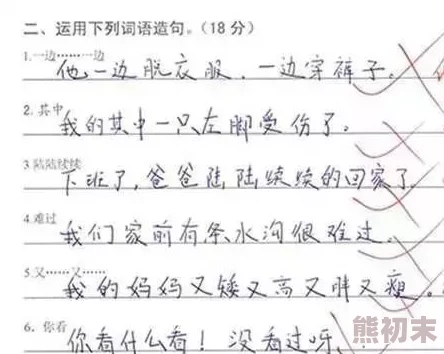 二、运用下列词语造句。(18 分)
1.一边……一边
他一边脱衣服，一边穿裤子。
2.其中
我的其中一只左脚受伤了。
3.陆陆续续
下班了,爸爸陆陆续续的回家了
4.难过
我们家门前有条水沟很难过。
5.又……又……
我的妈妈又矮又高又胖又瘦。
6.你看
你看什么看！没看过呀、
熊初末